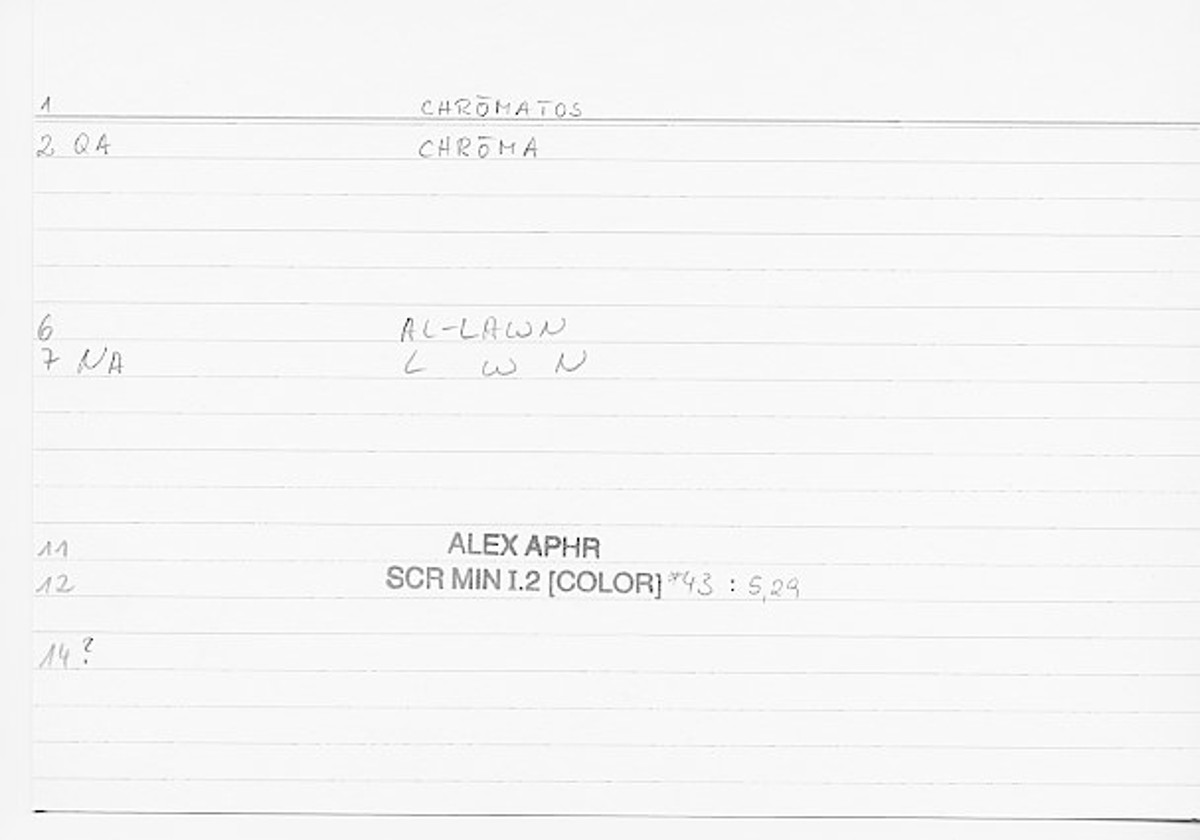 1 CHRŌMATOS
2 QA CHRŌMA
6 AL-LAWN
7 NA L W N
11 ALEX APHR
12 SCR MIN I.2 [COLOR] *43 : 5,29
14?